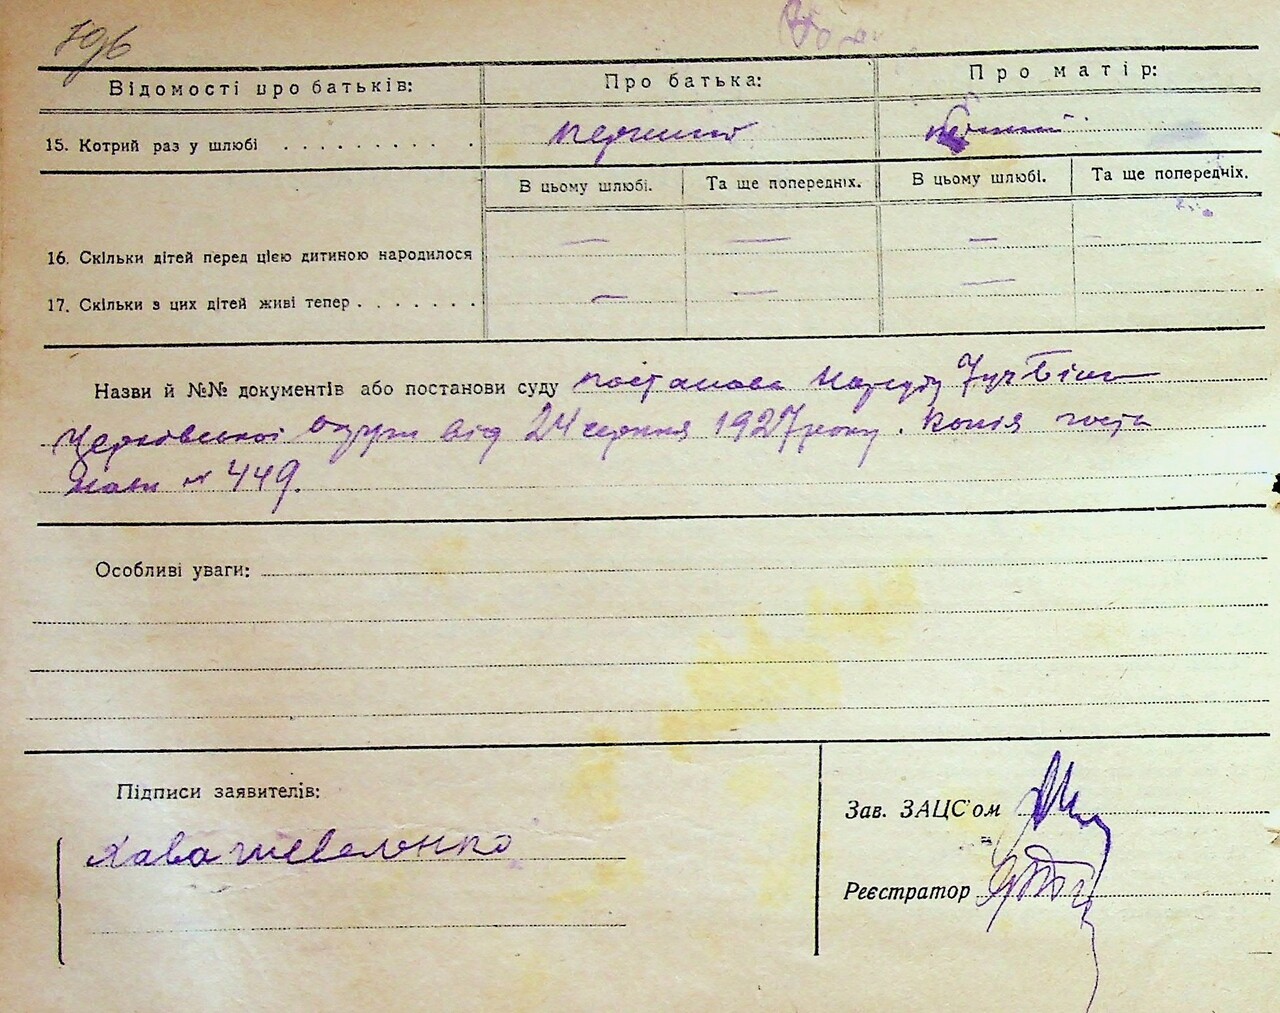 796
Відомості про батьків: Про батька: Про матір:
15. Котрий раз у шлюбі . . . . . . . . . . перший перший
В цьому шлюбі. Та ще попередніх. В цьому шлюбі. Та ще попередніх.
16. Скільки дітей перед цією дитиною народилося — — — —
17. Скільки з цих дітей живі тепер . . . . . . . — — —
Назви й №№ документів або постанови суду постанова
від 24 серпня 1927 року. Копія поста
нови № 449.
Особливі уваги:
Підписи заявителів:
Зав. ЗАЦС'ом
Хава Шевеленко
Реєстратор